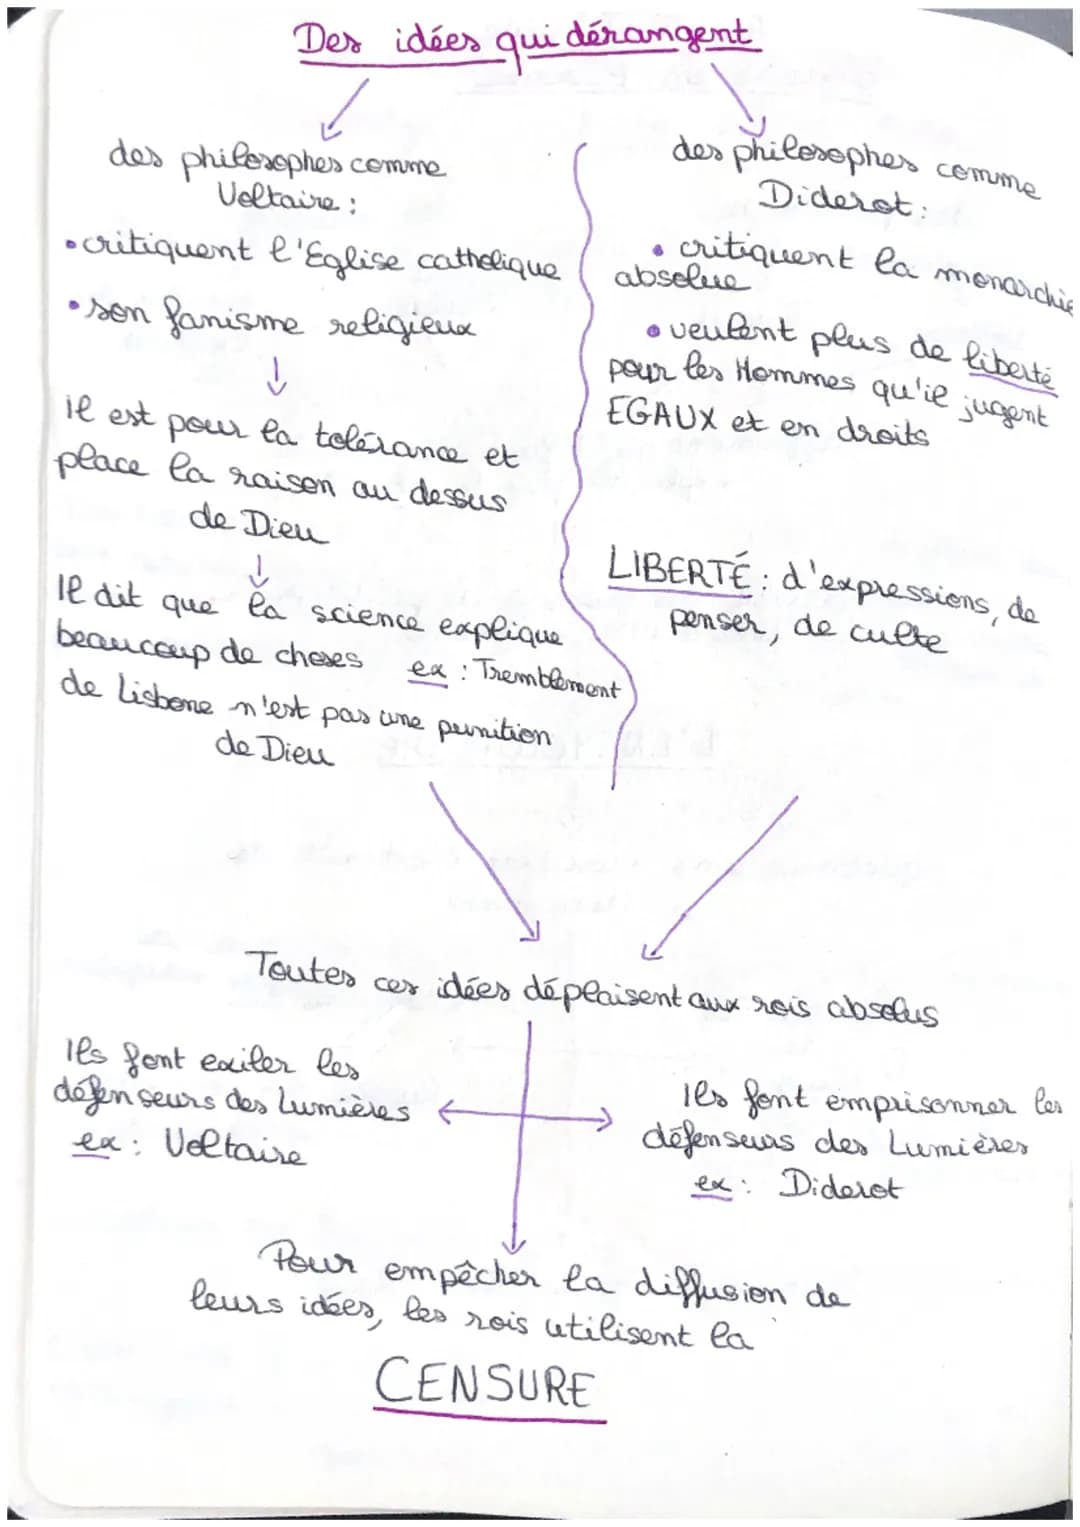 Des idées qui dérangent
des philosophes comme
Voltaire :
•critiquent l'Eglise catholique
•son fanisme religieux
il est pour la tolérance et
place la raison au dessus
de Dieu
Il dit que la science explique
beaucoup de choses ex : Tremblement
de Lisbone n'est pas une punition
de Dieu
des philosophes comme
Diderot :
• critiquent la monarchie
absolue
• veulent plus de liberté
pour les Hommes qu'il jugent
EGAUX et en droits
LIBERTÉ : d'expressions, de
penser, de culte
Toutes ces idées déplaisent aux rois absolus
Ils font exiler les
défenseurs des Lumières
ex : Voltaire
Ils font emprisonner les
défenseurs des Lumières
ex : Diderot
Pour empêcher la diffusion de
leurs idées, les rois utilisent la
CENSURE